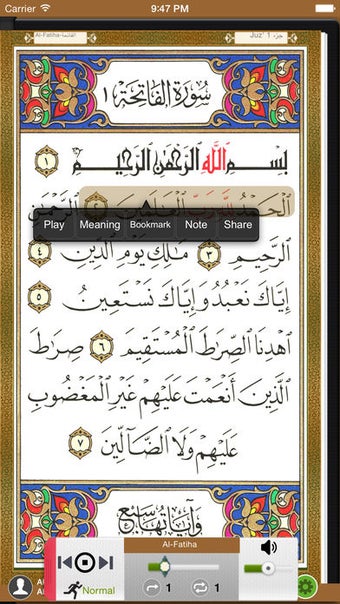 Carrier 9:47 PM
Al-Fatiha-الفاتحة Juz' 1 جزء
سُورَةُ الفَاتِحَةِ ١
بِسْمِ اللَّهِ الرَّحْمَٰنِ الرَّحِيمِ ١
الْحَمْدُ لِلَّهِ رَبِّ الْعَالَمِينَ ٢ الرَّحْمَٰنِ
Play Meaning Bookmark Note Share
الرَّحِيمِ ٣ مَالِكِ يَوْمِ الدِّينِ ٤
إِيَّاكَ نَعْبُدُ وَإِيَّاكَ نَسْتَعِينُ ٥
اهْدِنَا الصِّرَاطَ الْمُسْتَقِيمَ ٦ صِرَاطَ
الَّذِينَ أَنْعَمْتَ عَلَيْهِمْ غَيْرِ الْمَغْضُوبِ
عَلَيْهِمْ وَلَا الضَّالِّينَ ٧
وَآيَاتُهَا سَبْعٌ
Al-Fatiha
Normal 1 1